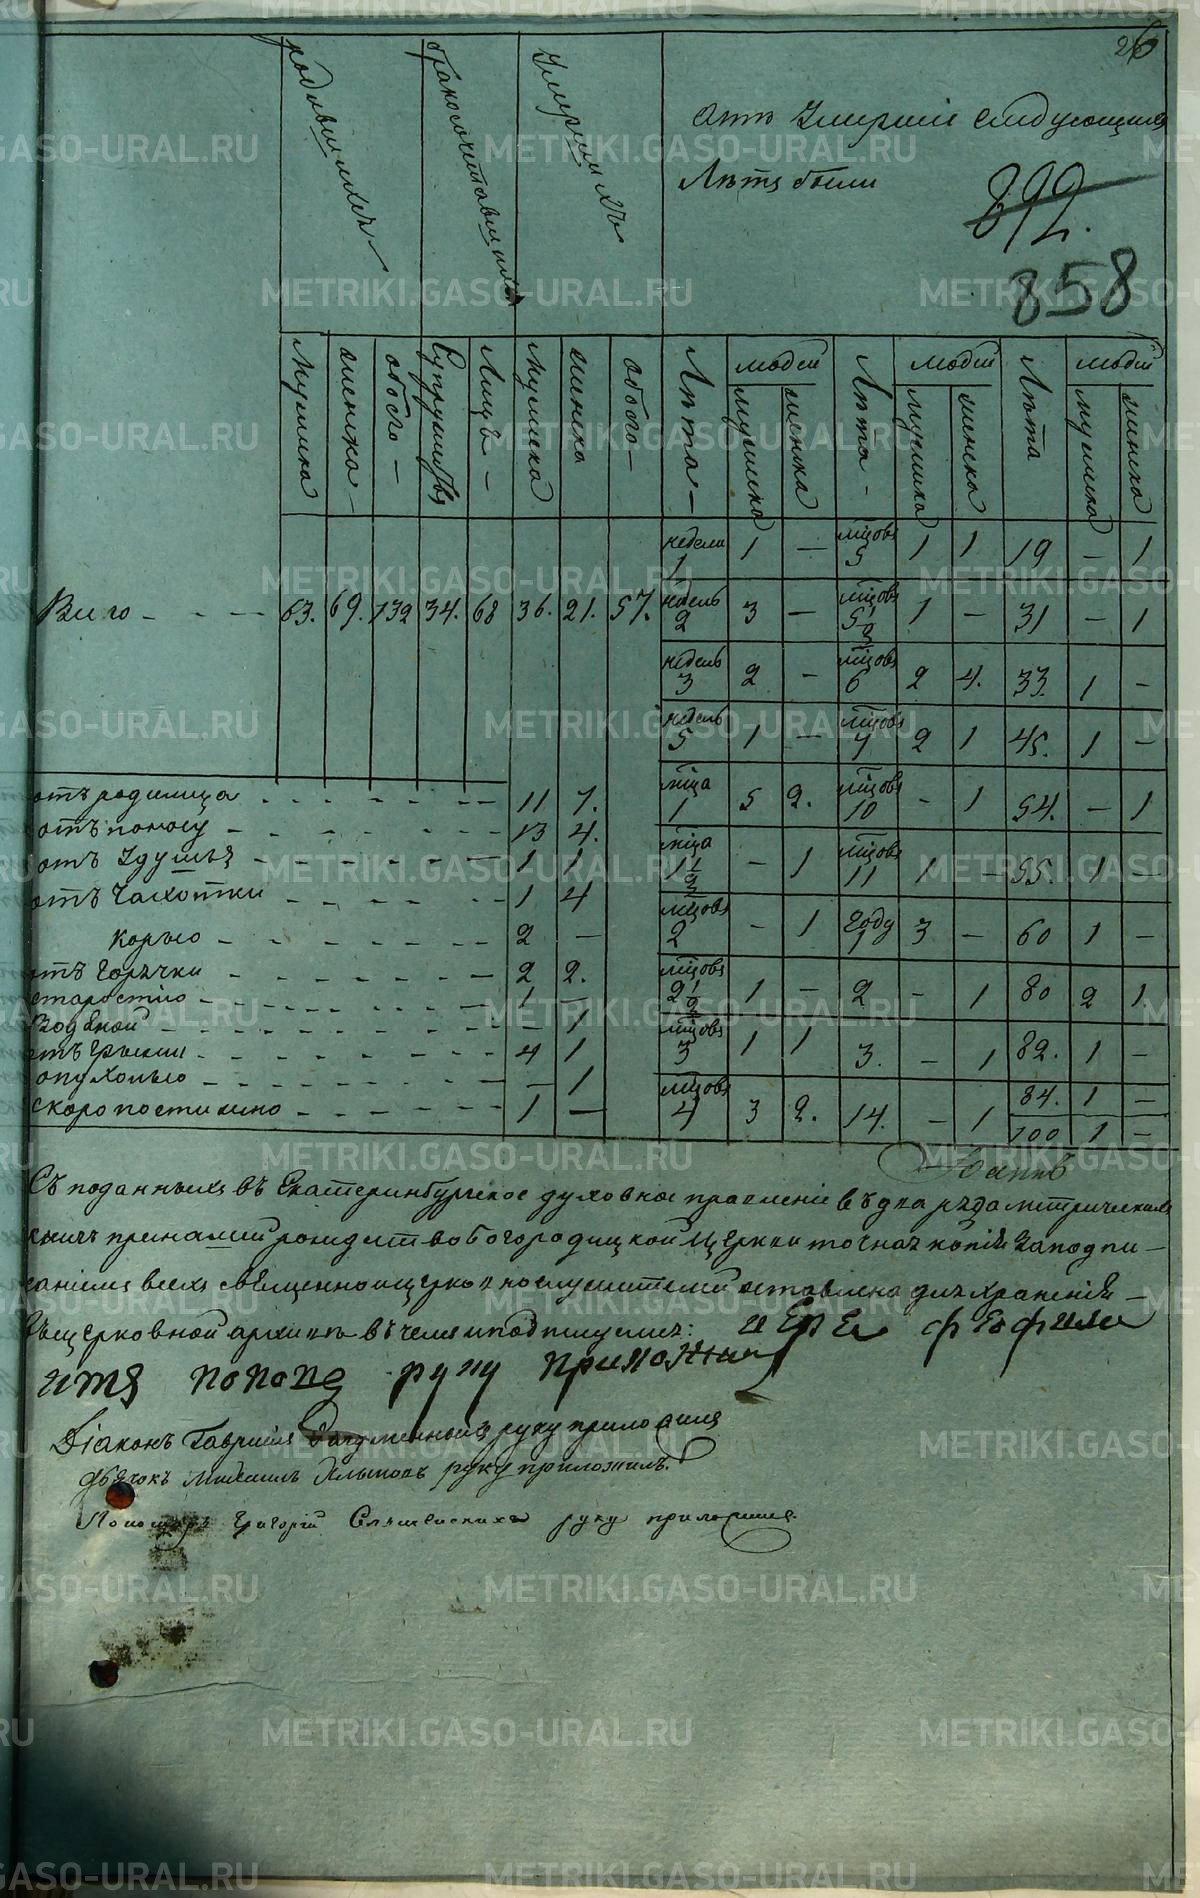 26
родившихся
бракосочетавшихся
умершихъ
отъ умершiе следующихъ
лѣтъ были
892.
858
мужеска
женска
обоего
супружествъ
лицъ
мужеска
женска
обоего
лѣта
людей
мужеска
женска
лѣта
людей
мужеска
женска
лѣта
людей
мужеска
женска
Всего 63. 69. 132 34. 68 36. 21. 57.
недели 1 1 — мцовъ 5 1 1 19 — 1
недель 2 3 — мцовъ 5 1/2 1 — 31 — 1
недель 3 2 — мцовъ 6 2 4. 33. 1 —
недель 5 1 — мцовъ 7 2 1 45. 1 —
мца 1 5 2. мцовъ 10 - 1 54. — 1
мца 1 1/2 — 1 мцовъ 11 1 — 55. 1 —
мцовъ 2 — 1 году 1 3 — 60 1 —
мцовъ 2 1/2 1 — 2 — 1 80 2 1.
мцовъ 3 1 1 3. — 1 82. 1 —
мцовъ 4 3 2. 14. — 1 84. 1 —
100 1 —
отъ родимца 11 7.
отъ поносу 13 4.
отъ удушья 1 1
отъ чахотки 1 4
корью 2 —
отъ горячки 2 2.
старостiю 1 —
водяной — 1
отъ грыжи 4 1
опухолью — 1
скоропостижно 1 —
Съ поданныхъ въ Екатеринбургское духовное правленiе въ два ряда метрическихъ
книгъ при нашей рождество Богородицкой церкви точная копiя за подпи-
санiемъ всехъ священно и церковнослужителей оставлена для храненiя
въ церковной архивъ въ чемъ и подпишемся: иерей Феофилактъ Поповъ руку приложилъ
Дiаконъ Гаврiилъ руку приложилъ
дьячокъ Михаилъ руку приложилъ.
Пономарь Григорiй руку приложилъ
METRIKI.GASO-URAL.RU